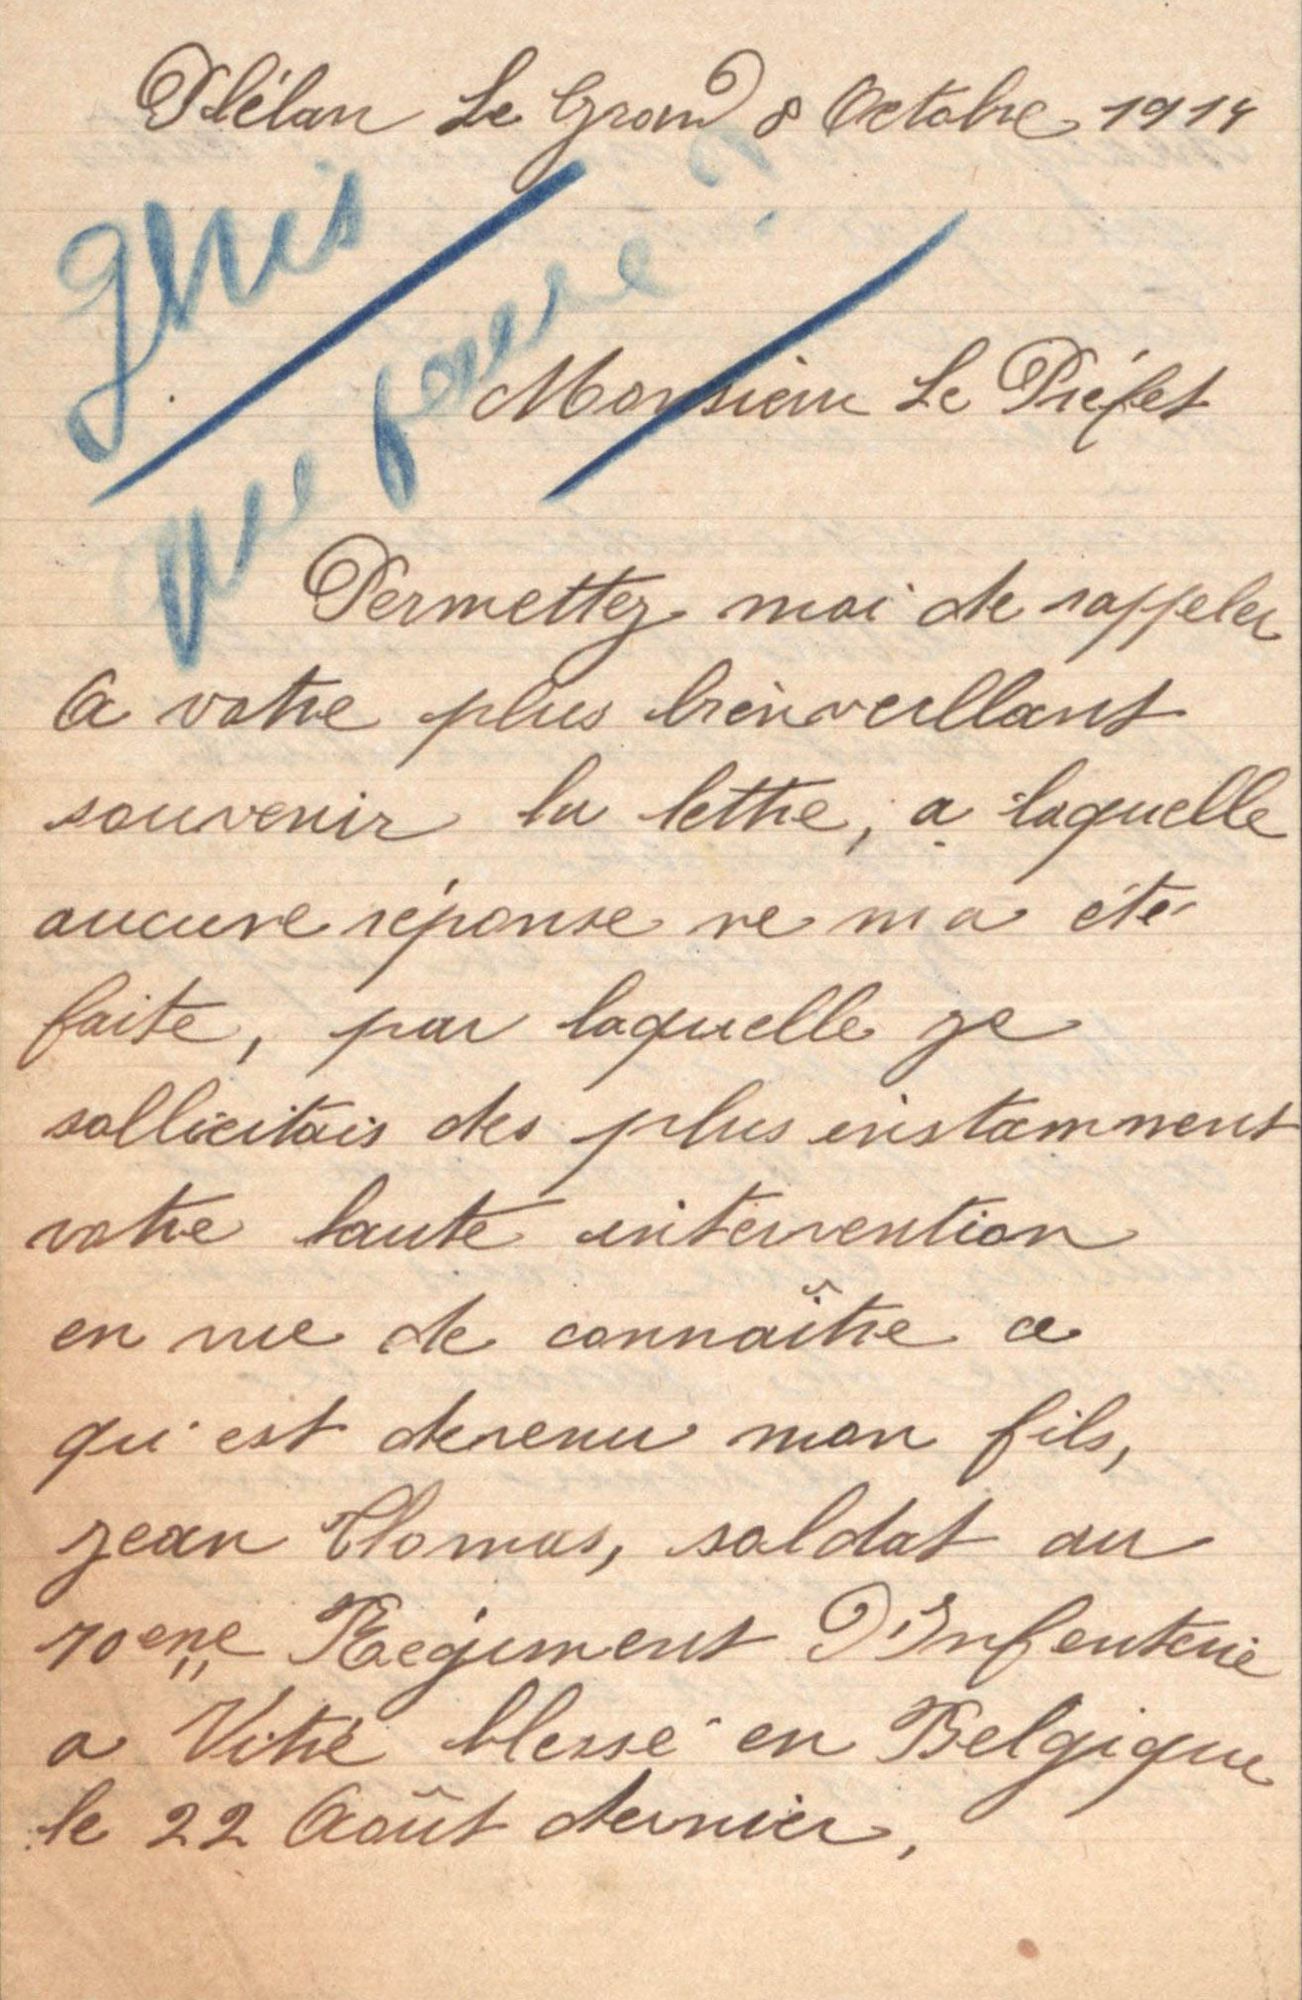 Plélan Le Grand 8 Octobre 1914
que faire ?
Monsieur Le Préfet
Permettez moi de rappeler
a votre plus bienveillant
souvenir la lettre, a laquelle
aucune réponse ne m a été
faite, par laquelle je
sollicitais des plus instamment
votre haute intervention
en vue de connaître ce
qui est devenu mon fils,
jean Thomas, soldat au
70eme Régiment D'Infenterie
a Vitré blessé en Belgique
le 22 Août dernier,